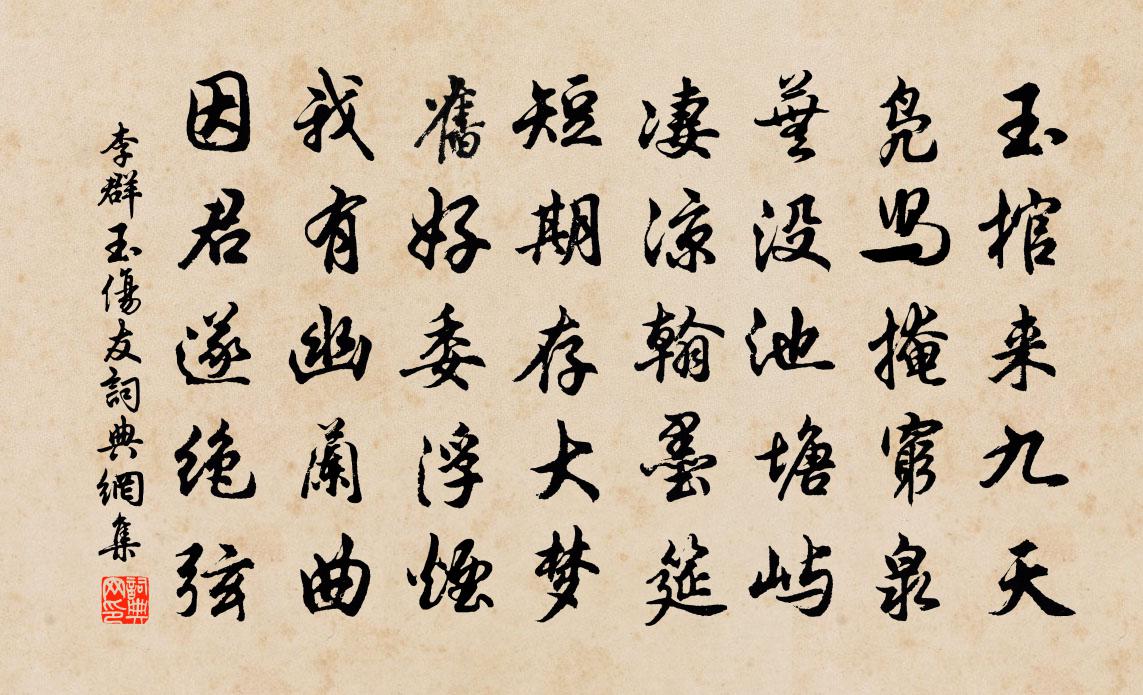 玉棺来九天
凫舄掩窮泉
蕪没池塘屿
凄凉翰墨筵
短期存大梦
舊好委浮煙
我有幽蘭曲
因君遂绝弦
李群玉傷友詞典網集
詞典网印